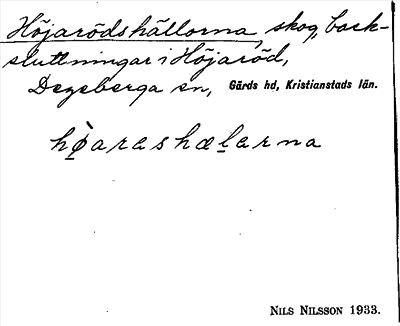 Höjarödshällorna, skog, back-
sluttningar i Höjaröd,
Degeberga sn, Gärds hd, Kristianstads län.
hø̀arashælarna
NILS NILSSON 1933.